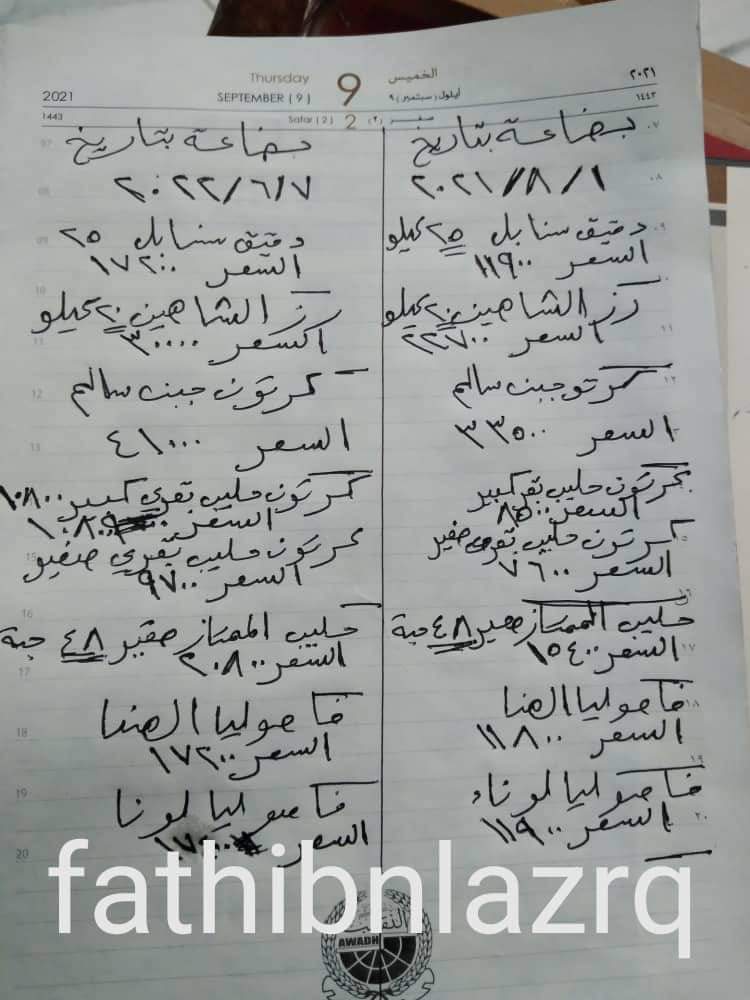 2021 Thursday 9 الخميس ٢٠٢١
SEPTEMBER ( 9 ) أيلول (سبتمبر) ٩
1443 Safar ( 2 ) 2 صفر (٢) ١٤٤٣
بضاعة بتاريخ
٢٠٢١/٨/١
دقيق سنابل ٢٥ كيلو
السعر ١١٩٠٠
رز الشاهين ٢٠ كيلو
السعر ٢٢٧٠٠
كرتو جبن سالم
السعر ٣٣٥٠٠
كرتون حليب بقر كبير
السعر ٨٥٠٠
كرتون حليب بقري صغير
السعر ٧٦٠٠
حليب الممتاز صغير ٤٨ حبة
السعر ١٥٤٠٠
فاصوليا الهنا
السعر ١١٨٠٠
فاصوليا لوناء
السعر ١١٩٠٠
بضاعة بتاريخ
٢٠٢٢/٦/٧
دقيق سنابل ٢٥
السعر ١٧٢٠٠
رز الشاهين ٢٠ كيلو
السعر ٣٠٠٠٠
كرتون جبن سالم
السعر ٤١٠٠٠
كرتون حليب بقري كبير ١٠٨٠٠
السعر
كرتون حليب بقري صغير
السعر ٩٧٠٠
حليب الممتاز صغير ٤٨ حبة
السعر ٢٠٨٠٠
فاصوليا الهنا
السعر ١٧٢٠٠
فاصوليا لونا
السعر
fathibnlazrq
AWADH